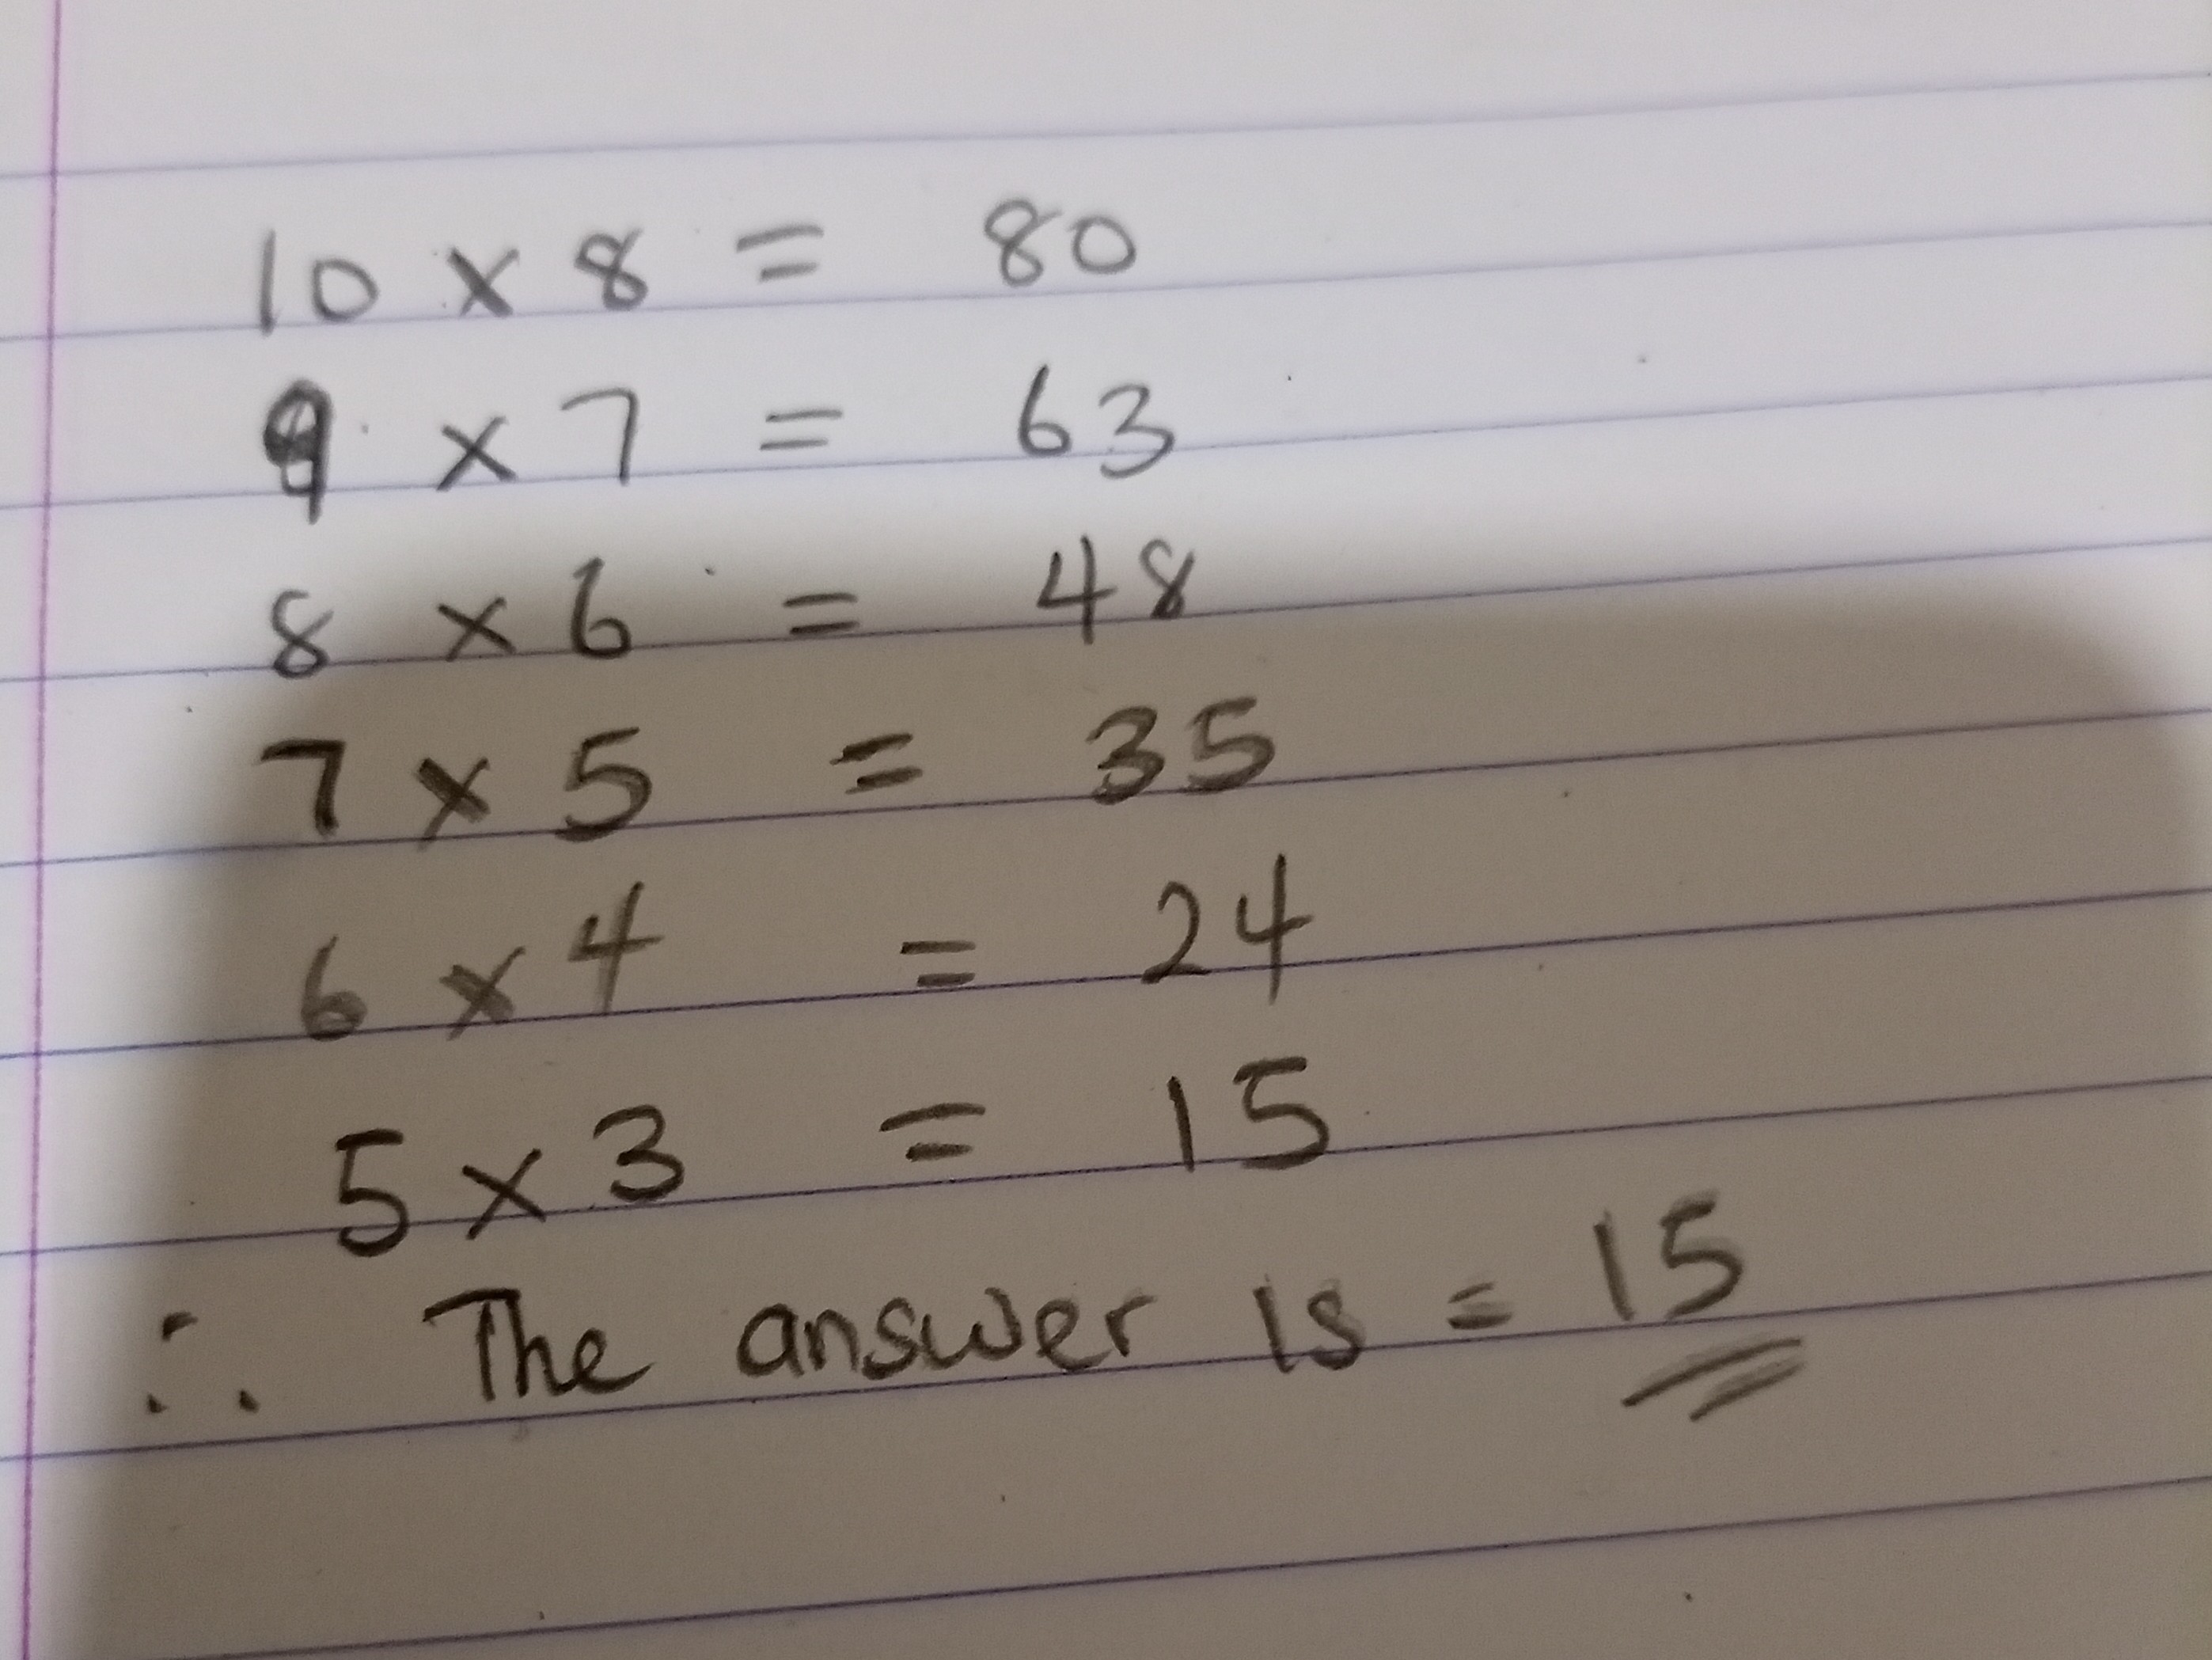 10 x 8 = 80
9 x 7 = 63
8 x 6 = 48
7 x 5 = 35
6 x 4 = 24
5 x 3 = 15
∴ The answer is = 15